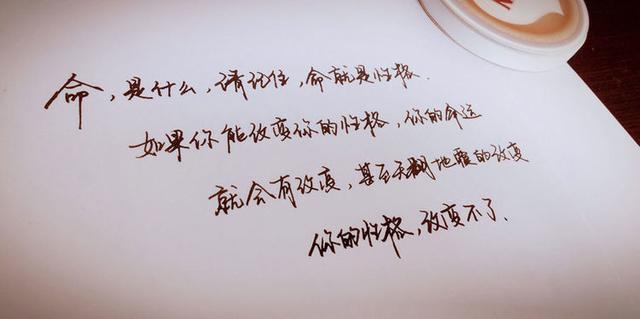 命，是什么，请记住，命就是性格.
如果你能改变你的性格，你的命运
就会有改变，甚至天翻地覆的改变
你的性格，改变不了.